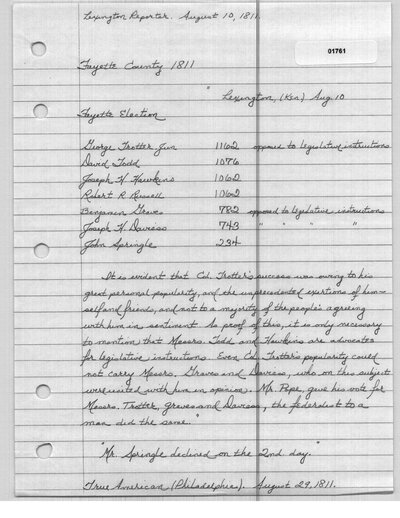 Lexington Reporter. August 10, 1811.
01761
Fayette County 1811
" Lexington, (Ken) Aug. 10
Fayette Election
George Trotter Jun 1162 opposed to legislative instructions
David Todd 1076
Joseph H. Hawkins 1062
Robert R. Russell 1062
Benjamin Graves 782 opposed to legislative instructions
Joseph H. Daviess 743 " " " "
John Springle 234
It is evident that Col. Trotter's success was owing to his
great personal popularity, and the unprecedented exertions of him-
self and friends, and not to a majority of the people's agreeing
with him in sentiment. As proof of this, it is only necessary
to mention that Messrs. Todd and Hawkins are advocates
for legislative instructions. Even Col. Trotter's popularity could
not carry Messrs. Graves and Daviess, who on this subject
were united with him in opinion. Mr. Pope, gave his vote for
Messrs. Trotter, Graves and Daviess, the federalist to a
man did the same."
"Mr. Springle declined on the 2nd day."
True American (Philadelphia). August 29, 1811.